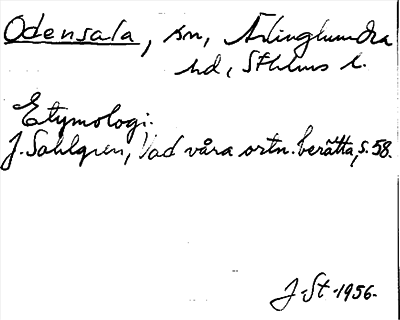 Odensala, sn, Ärlinghundra
hd, Sthlms l.
Etymologi:
J. Sahlgren, Vad våra ortn. berätta, s. 58.
J. St. 1956.